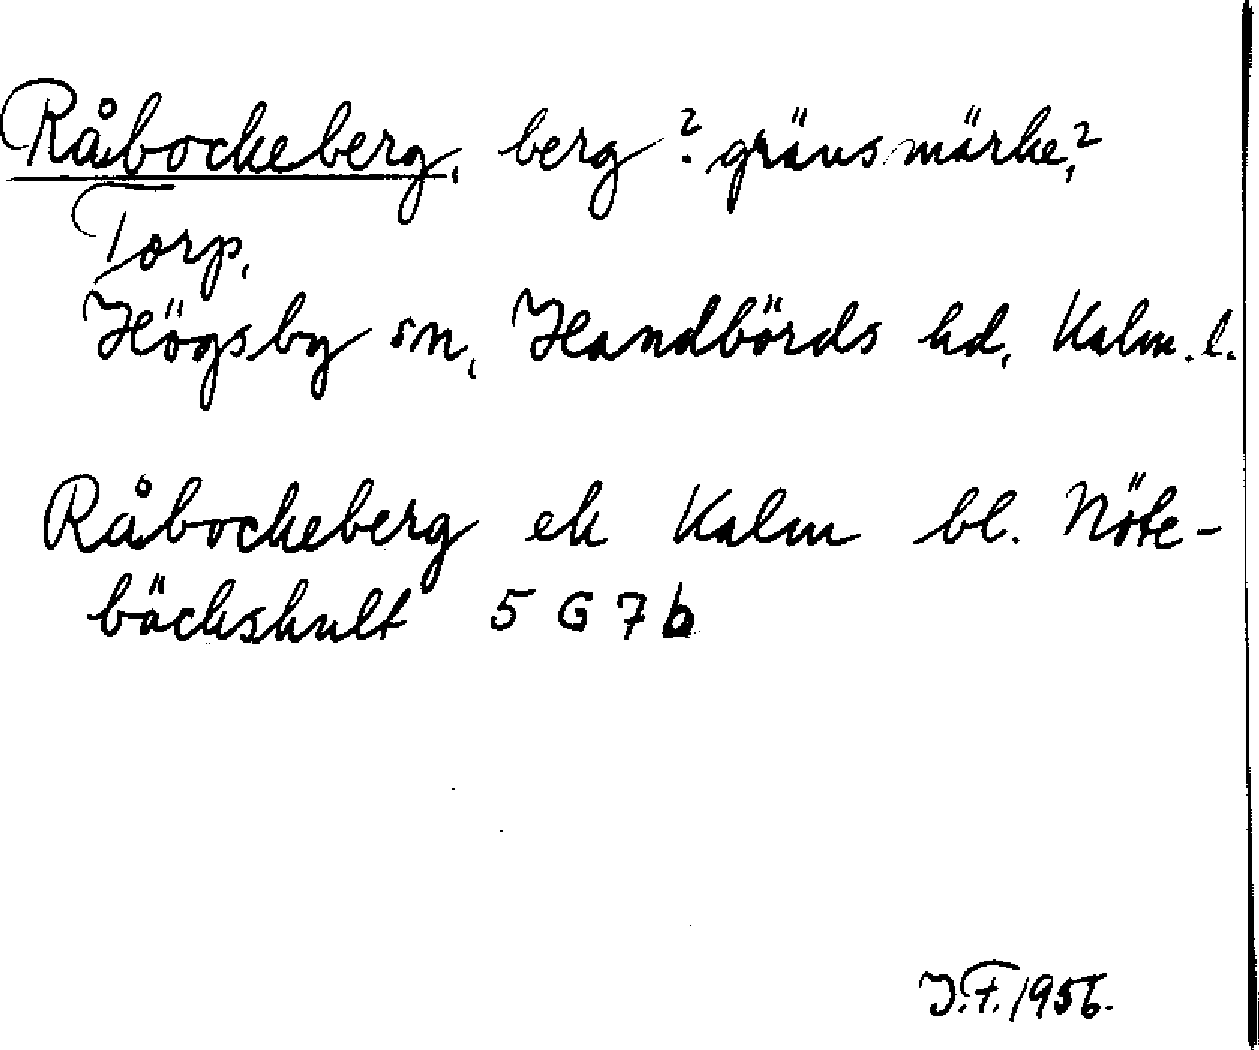 Råbockeberg, berg? gränsmärke,?
Torp,
Högsby sn, Handbörds hd, Kalm. l.
Råbockeberg ek Kalm bl. Nöte-
bäckshult 5 G 7 b
J.F. 1956.